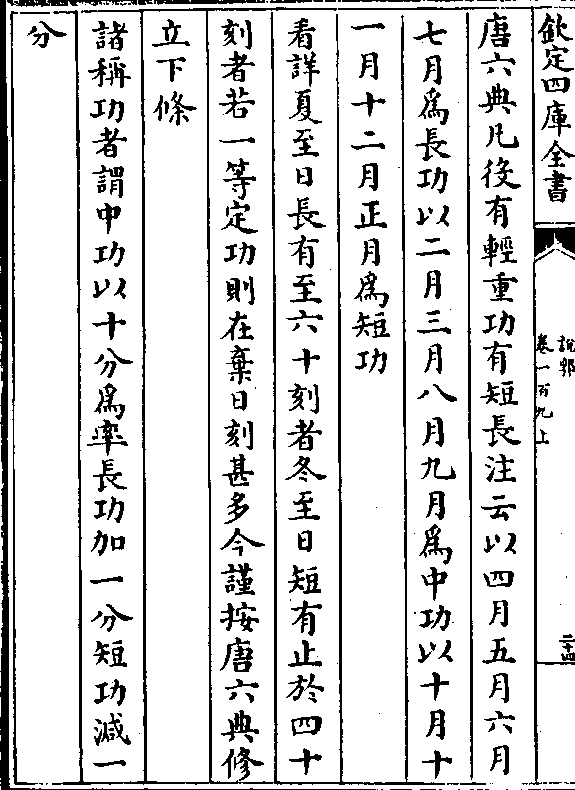 欽定四庫全書
說郛
卷一百九上
二十四
唐六典凡役有輕重功有短長注云以四月五月六月
七月爲長功以二月三月八月九月爲中功以十月十
一月十二月正月爲短功
看詳夏至日長有至六十刻者冬至日短有止於四十
刻者若一等定功則在棄日刻甚多今謹按唐六典修
立下條
諸稱功者謂中功以十分爲率長功加一分短功減一
分